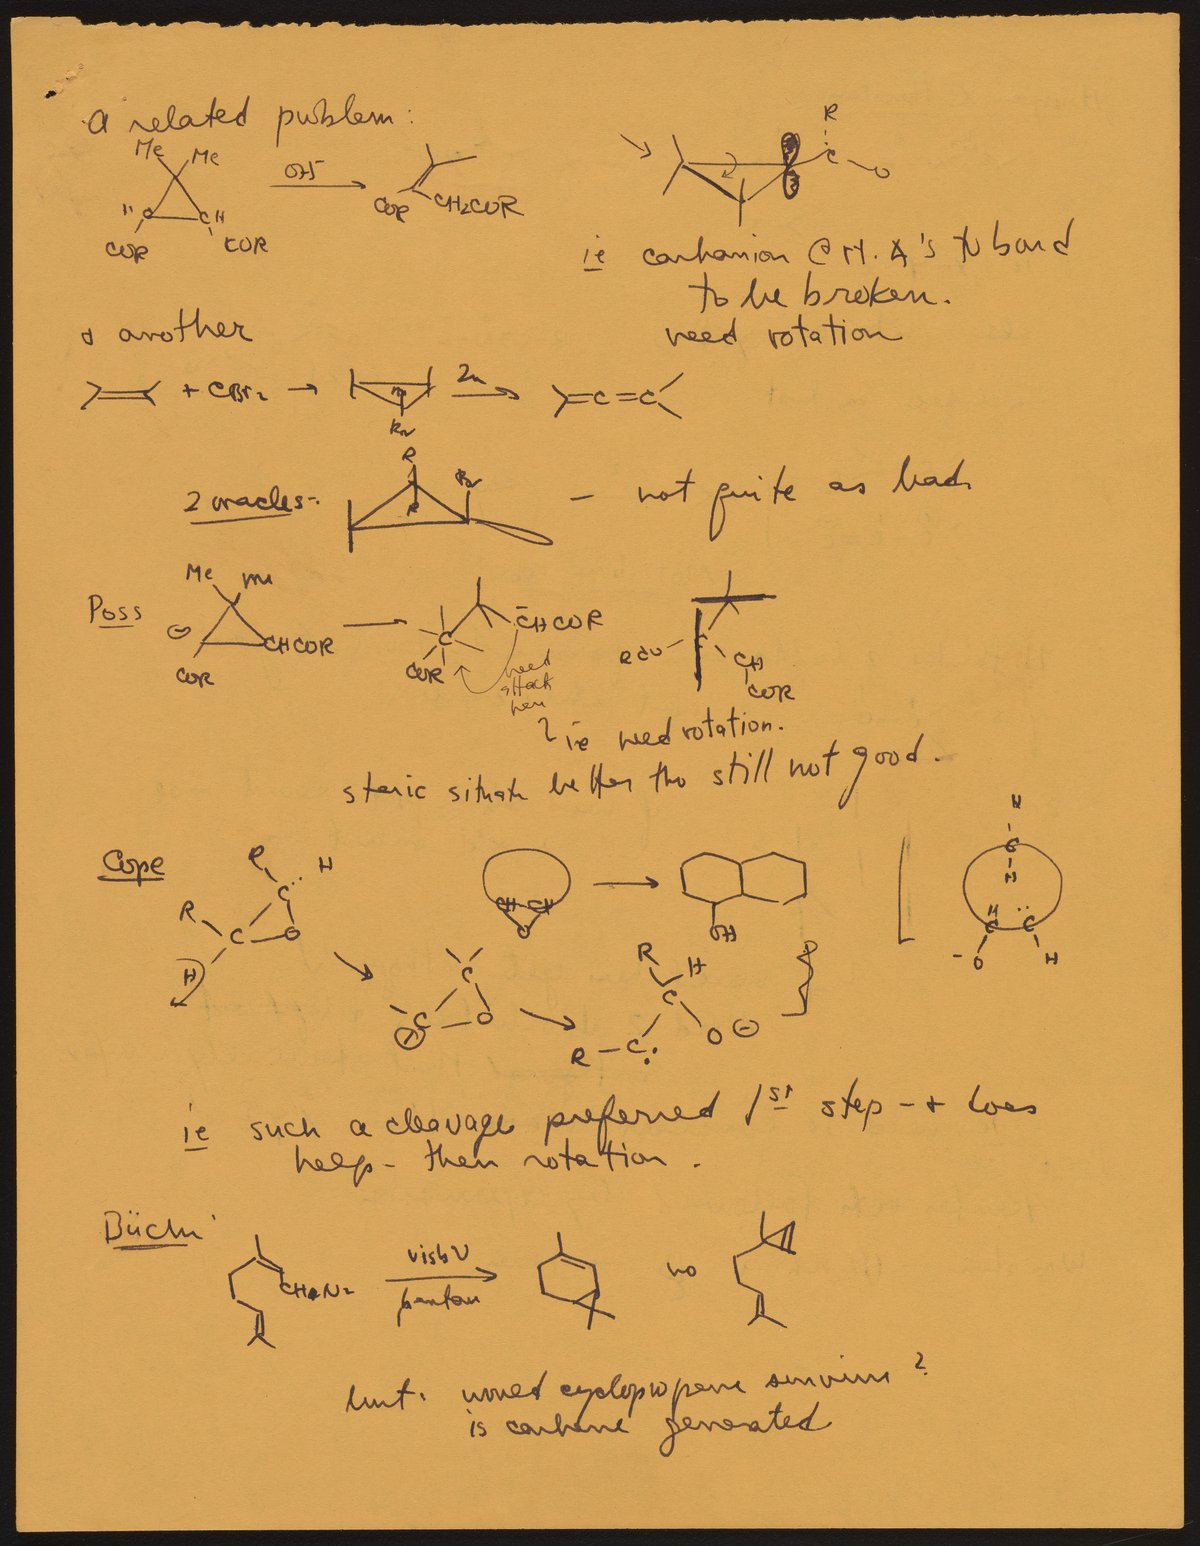 A related problem:
Me Me
OH⁻
H C CH
COR COR
COR CH₂COR
R
C O
ie carbanion @ rt. ∡'s to bond
to be broken.
need rotation
& another
+ CBr₂ → Zn =C=C
Br
2 oracles:
R
R
Br
- not quite as bad
Poss
Me Me
⊖
COR
CHCOR
C
COR
C̄HCOR
need
attack
here
ROC
C
CH
COR
? ie need rotation.
steric situatn better tho still not good.
Cope
R C H
R C O
H
CH CH
O
OH
H
C
H
H C C
-O H
C
⊕ C O
R H
C
R - C: O ⊖
ie such a cleavage preferred 1st step - & does
help - then rotation.
Büchi
CH=N₂
visb V
pentan
no
but: would cyclopropene survive?
is carbene generated